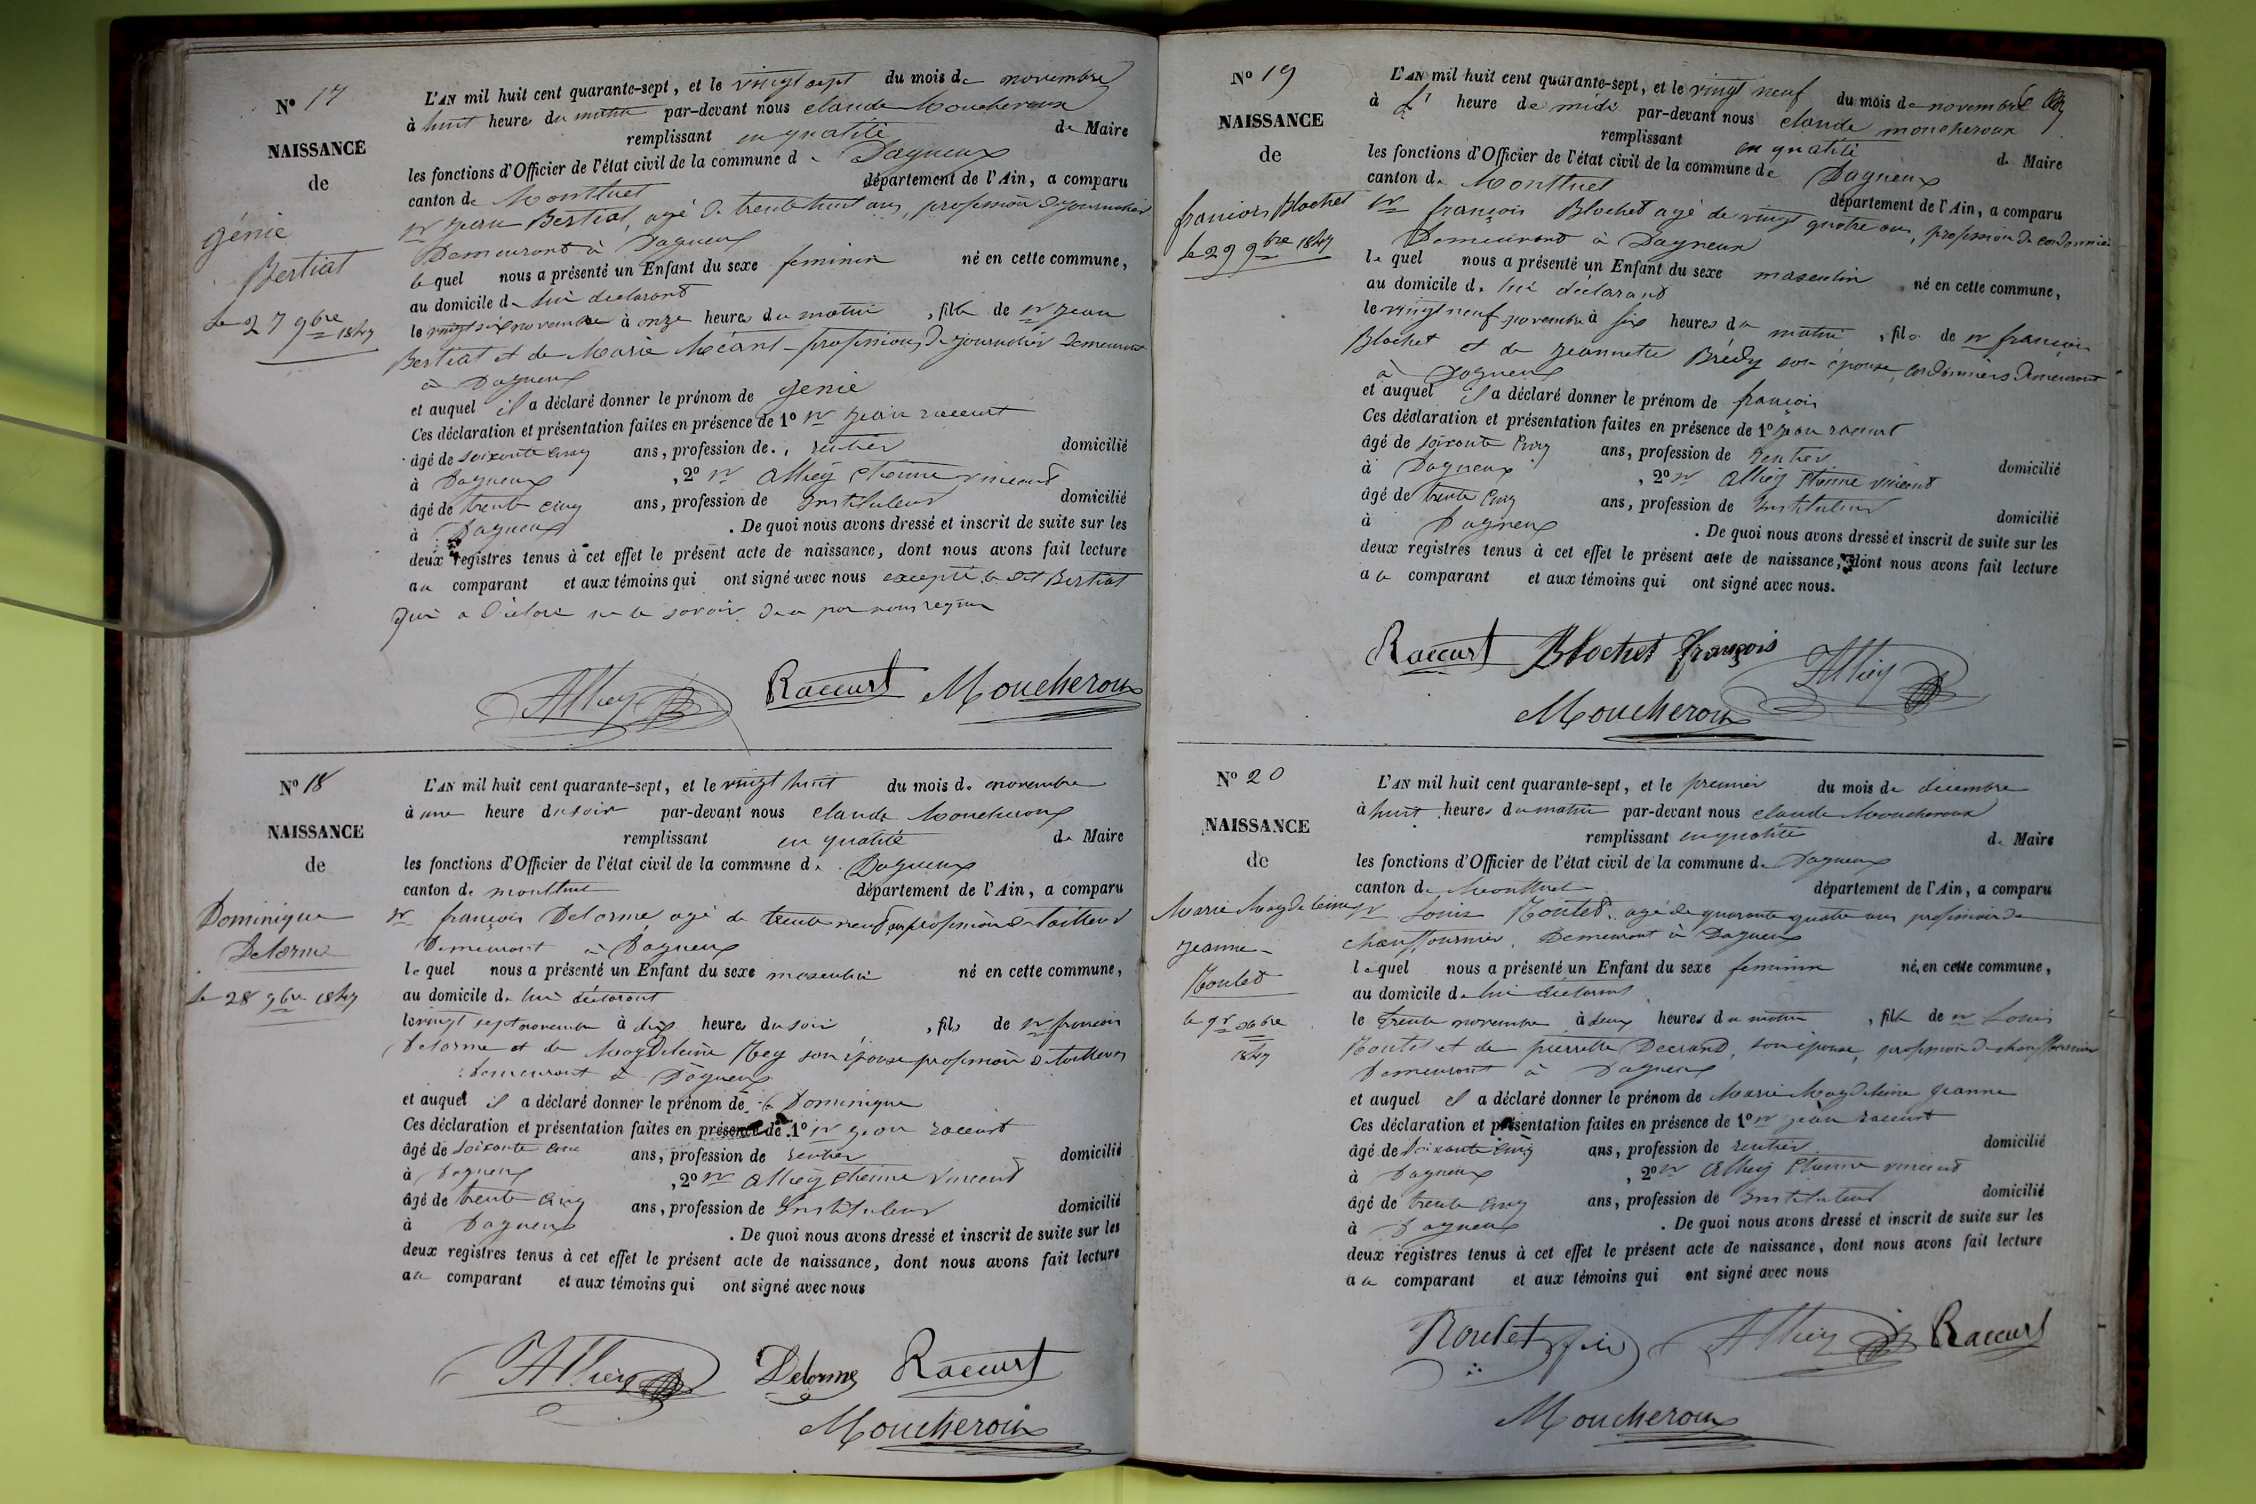 N° 17
NAISSANCE
de
génie
Bertiat
le 27 9bre 1847
L'AN mil huit cent quarante-sept, et le vingt sept du mois de novembre
à huit heures du matin par-devant nous claude Moucheroux
remplissant en qualité de Maire
les fonctions d'Officier de l'état civil de la commune de Dagneux
canton de Montluel département de l'Ain, a comparu
sr jean Bertiat, agé de trente huit ans, profession de journalier
Demeurant à Dagneux
le quel nous a présenté un Enfant du sexe feminin né en cette commune,
au domicile de lui déclarant
le vingt six novembre à onze heures du matin , fille de sr jean
Bertiat et de Marie professions de journalier Demeurant
à Dagneux
et auquel il a déclaré donner le prénom de génie
Ces déclaration et présentation faites en présence de 1° sr jean raccurt
âgé de soixante cinq ans, profession de rentier domicilié
à Dagneux , 2° sr Athiey etienne vincent
âgé de trente cinq ans, profession de Instituteur domicilié
à Dagneux . De quoi nous avons dressé et inscrit de suite sur les
deux registres tenus à cet effet le présent acte de naissance, dont nous avons fait lecture
au comparant et aux témoins qui ont signé avec nous excepté le dit Bertiat
qui a déclaré ne le savoir de ce par nous requis
Athiey Raccurt Moucheroux
N° 18
NAISSANCE
de
Dominique
Delorme
le 28 9bre 1847
L'AN mil huit cent quarante-sept, et le vingt huit du mois de novembre
à une heure du soir par-devant nous claude Moucheroux
remplissant en qualité de Maire
les fonctions d'Officier de l'état civil de la commune de Dagneux
canton de montluel département de l'Ain, a comparu
sr françois Delorme agé de trente neuf ans profession de Tailleur
Demeurant à Dagneux
le quel nous a présenté un Enfant du sexe masculin né en cette commune,
au domicile de lui déclarant
le vingt sept novembre à dix heures du soir , fils de sr françois
Delorme et de Magdeleine Rey son épouse profession de tailleur
demeurant à Dagneux
et auquel il a déclaré donner le prénom de Dominique
Ces déclaration et présentation faites en présence de 1° sr jean raccurt
âgé de soixante cinq ans, profession de rentier domicilié
à Dagneux , 2° sr Athiey etienne vincent
âgé de trente cinq ans, profession de Instituteur domicilié
à Dagneux . De quoi nous avons dressé et inscrit de suite sur les
deux registres tenus à cet effet le présent acte de naissance, dont nous avons fait lecture
au comparant et aux témoins qui ont signé avec nous
Athiey Delorme Raccurt
Moucheroux
N° 19
NAISSANCE
de
francois Blochet
le 29 9bre 1847
L'AN mil huit cent quarante-sept, et le vingt neuf du mois de novembre
à heure de midi par-devant nous claude moucheroux
remplissant en qualité de Maire
les fonctions d'Officier de l'état civil de la commune de Dagneux
canton de Montluel département de l'Ain, a comparu
sr françois Blochet agé de vingt quatre ans, profession de cordonnier
Demeurant à Dagneux
le quel nous a présenté un Enfant du sexe masculin né en cette commune,
au domicile de lui déclarant
le vingt neuf novembre à six heures du matin , fils de sr françois
Blochet et de jeannette Brédy son épouse, cordonniers Demeurant
à Dagneux
et auquel il a déclaré donner le prénom de françois
Ces déclaration et présentation faites en présence de 1° jean raccurt
âgé de soixante cinq ans, profession de Rentier domicilié
à Dagneux , 2° sr Athiey etienne vincent
âgé de trente cinq ans, profession de Instituteur domicilié
à Dagneux . De quoi nous avons dressé et inscrit de suite sur les
deux registres tenus à cet effet le présent acte de naissance, dont nous avons fait lecture
au comparant et aux témoins qui ont signé avec nous.
Raccurt Blochet françois Athiey
Moucheroux
N° 20
NAISSANCE
de
Marie Magdeleine
jeanne
Routet
le 1er xbre
1847
L'AN mil huit cent quarante-sept, et le premier du mois de décembre
à huit heures du matin par-devant nous claude Moucheroux
remplissant en qualité de Maire
les fonctions d'Officier de l'état civil de la commune de Dagneux
canton de Montluel département de l'Ain, a comparu
sr Louis Routet agé de quarante quatre ans profession de
chauffournier, Demeurant à Dagneux
le quel nous a présenté un Enfant du sexe feminin né en cette commune,
au domicile de lui déclarant
le trente novembre à deux heures du matin , fille de sr Louis
Routet et de pierrette Decrand, son épouse, profession de chauffournier
Demeurant à Dagneux
et auquel il a déclaré donner le prénom de Marie Magdeleine jeanne
Ces déclaration et présentation faites en présence de 1° sr jean raccurt
âgé de soixante cinq ans, profession de rentier domicilié
à Dagneux , 2° sr Athiey Etienne vincent
âgé de trente cinq ans, profession de Instituteur domicilié
à Dagneux . De quoi nous avons dressé et inscrit de suite sur les
deux registres tenus à cet effet le présent acte de naissance, dont nous avons fait lecture
au comparant et aux témoins qui ont signé avec nous
Routet Athiey Raccurt
Moucheroux